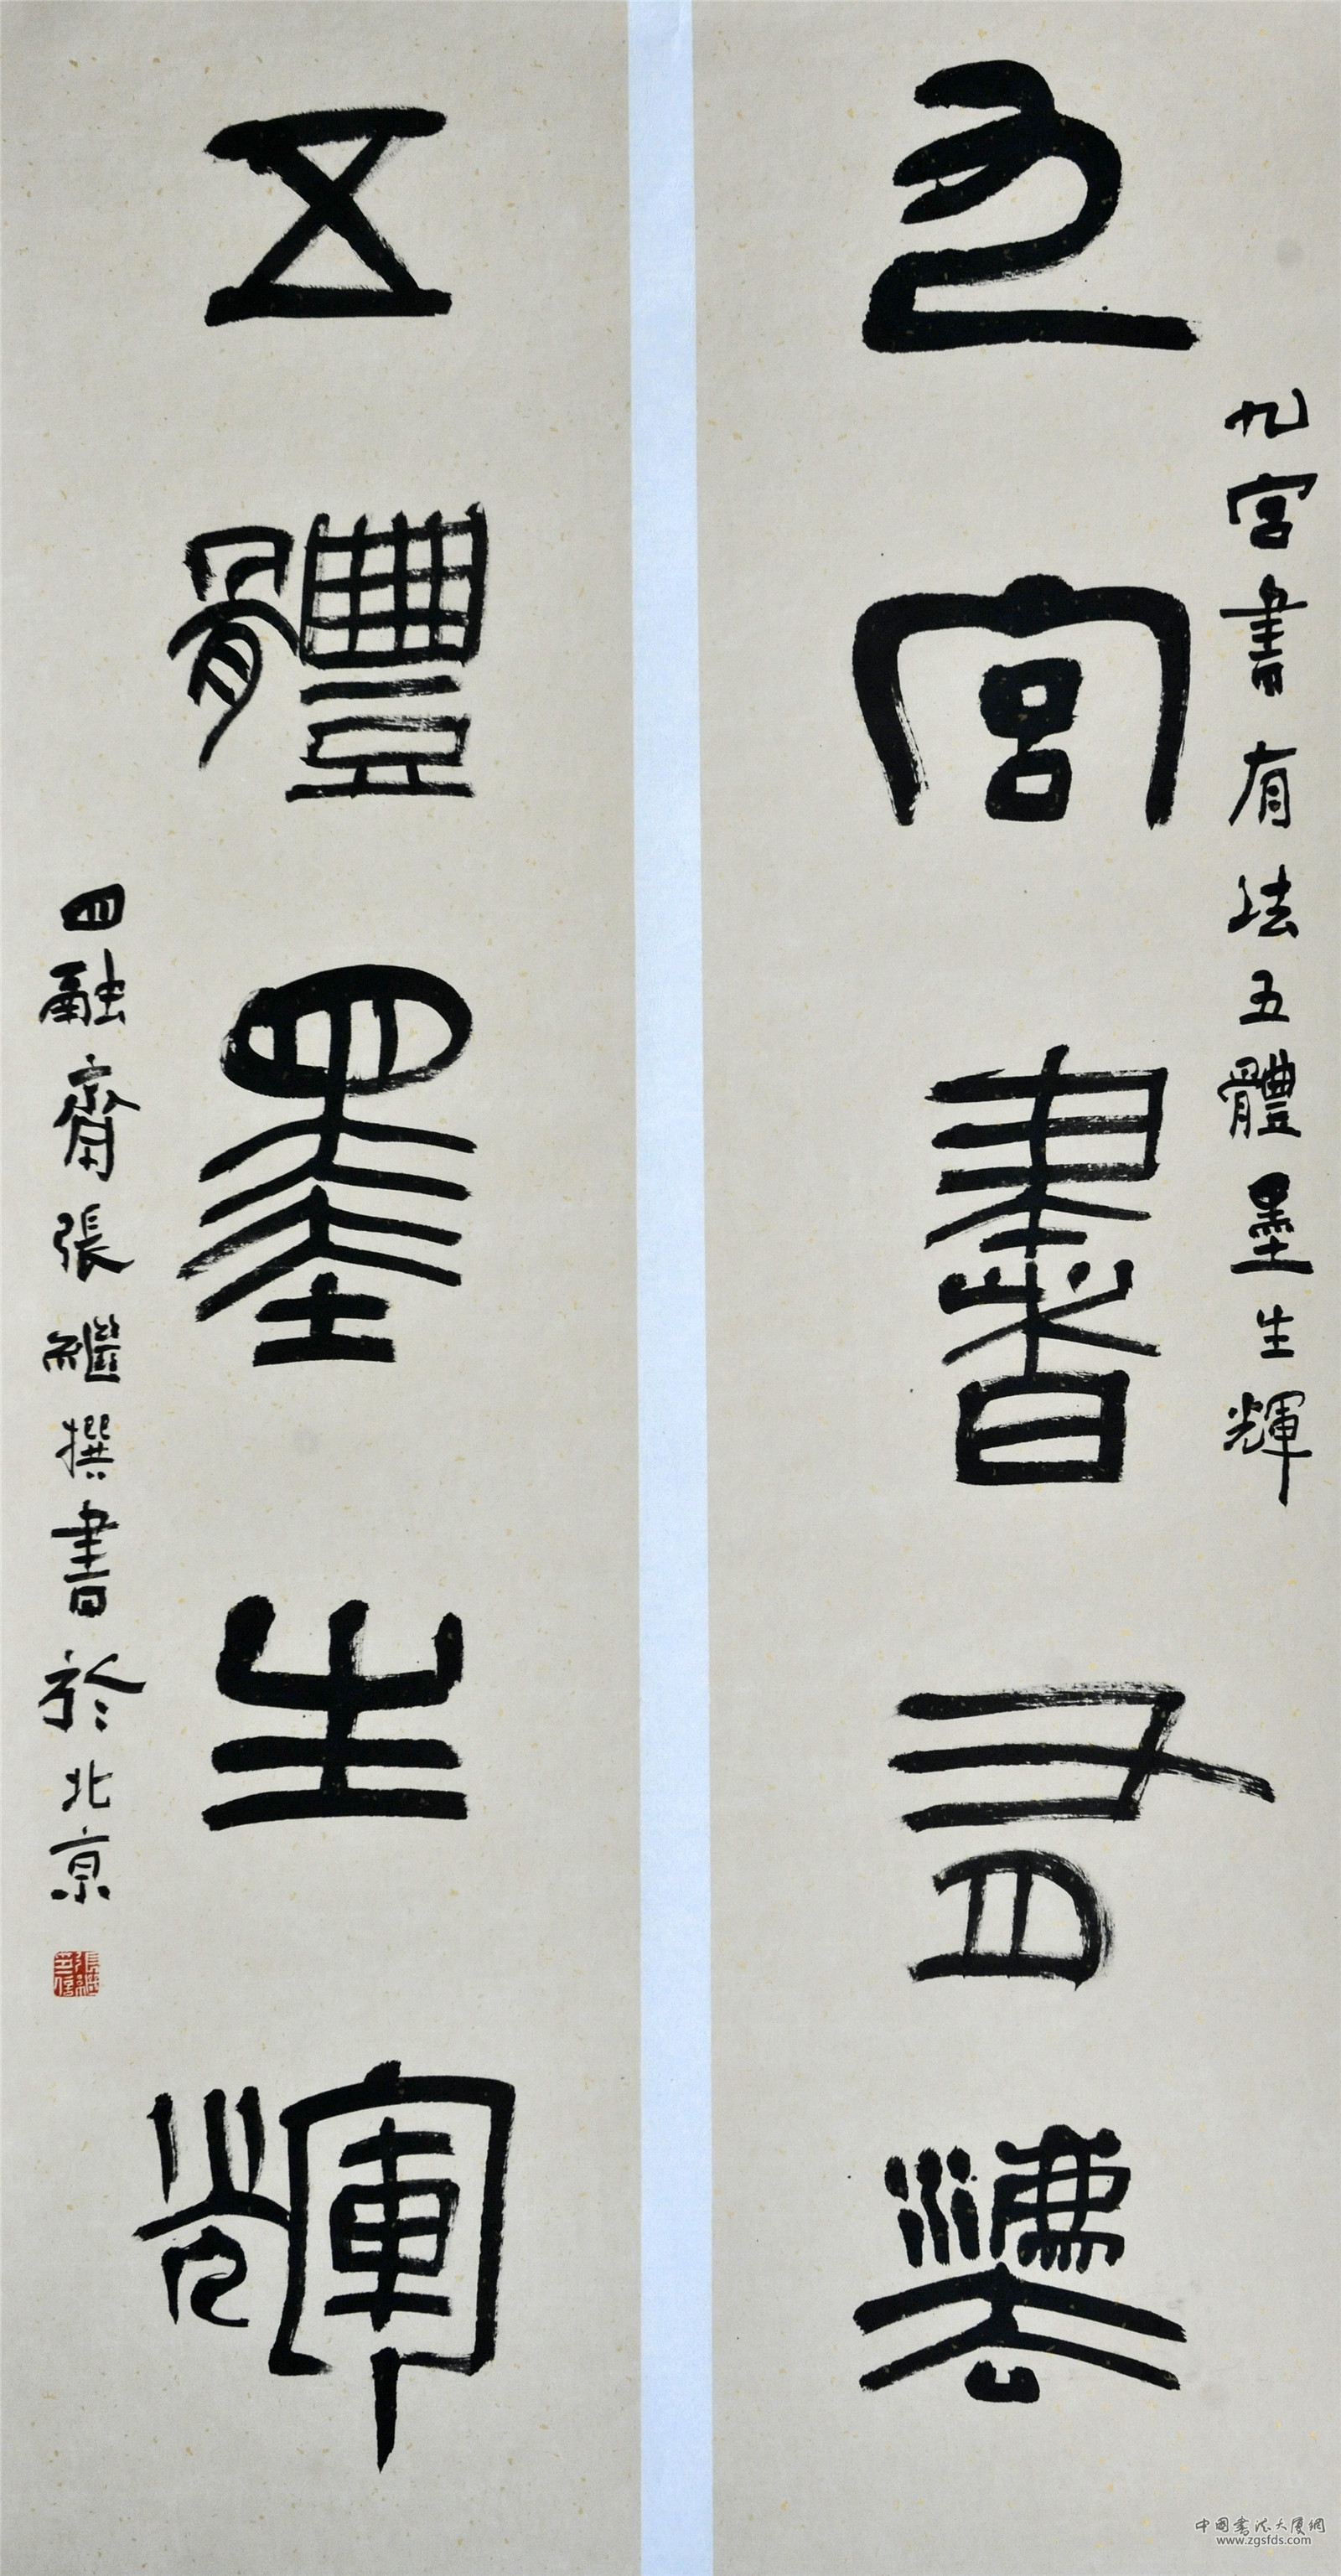 九宮書有法五體墨生輝
九宮書有灋
五體墨生輝
四融齋張繼撰書於北京
張繼之信
中國書法大廈網
www.zgsfds.com